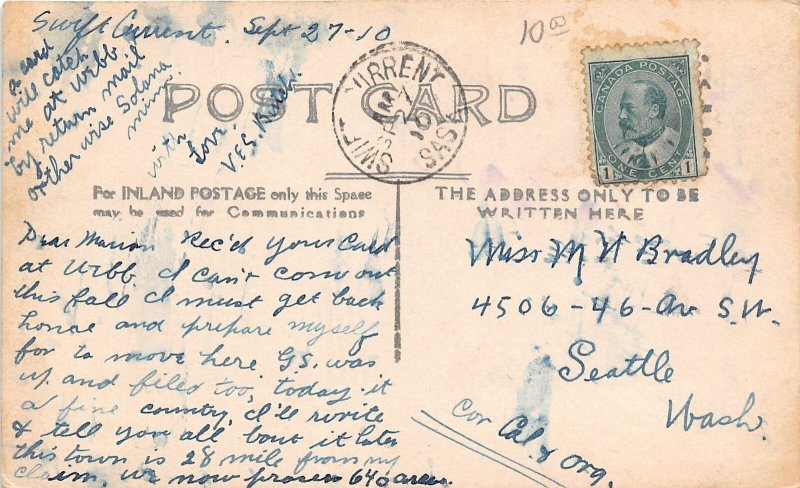 Swift Current. Sept 27-10
10 00
a card
will catch
me at Webb
by return mail
other wise Solana
minn.
with
Love
V.E.S.
POST CARD
SWIFT CURRENT
SASK
AM
SP 27
10
CANADA POSTAGE
1 ONE CENT 1
For INLAND POSTAGE only this Space
may be used for Communications
THE ADDRESS ONLY TO BE
WRITTEN HERE
Dear Marion Rec'd your Card
at Webb I can't come out
this fall I must get back
home and prepare myself
for to move here G.S. was
up and filed too, today. it
a fine country, I'll write
& tell you all bout it later
this town is 28 mile from my
claim, we now 640 acres.
Miss M N Bradley
4506-46-Av S.W.
Seattle
Wash.
Cor Cal. & Org.